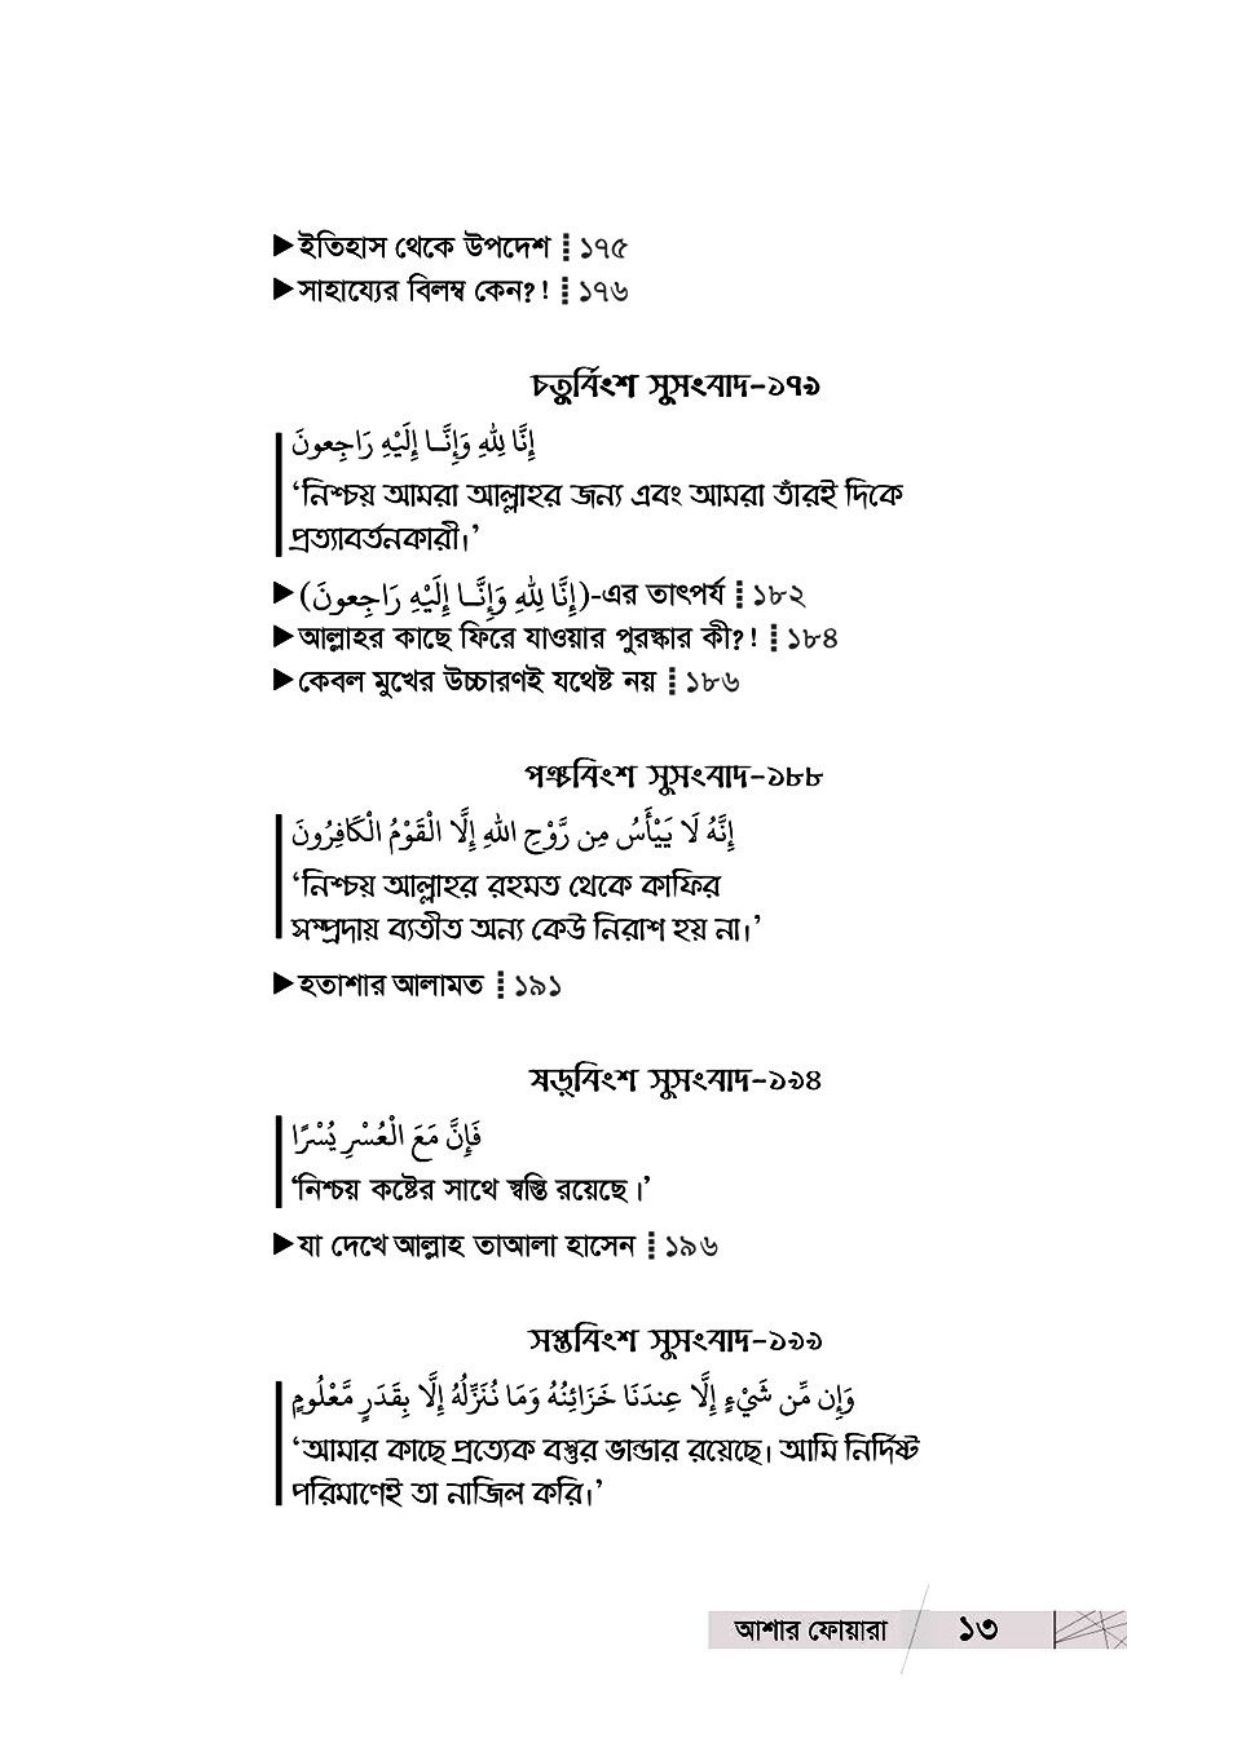 ▶ ইতিহাস থেকে উপদেশ ⁞ ১৭৫
▶ সাহায্যের বিলম্ব কেন?! ⁞ ১৭৬
চতুর্বিংশ সুসংবাদ-১৭৯
إِنَّا لِلّٰهِ وَإِنَّا إِلَيْهِ رَاجِعونَ
‘নিশ্চয় আমরা আল্লাহর জন্য এবং আমরা তাঁরই দিকে
প্রত্যাবর্তনকারী।’
▶ (إِنَّا لِلّٰهِ وَإِنَّا إِلَيْهِ رَاجِعونَ)-এর তাৎপর্য ⁞ ১৮২
▶ আল্লাহর কাছে ফিরে যাওয়ার পুরস্কার কী?! ⁞ ১৮৪
▶ কেবল মুখের উচ্চারণই যথেষ্ট নয় ⁞ ১৮৬
পঞ্চবিংশ সুসংবাদ-১৮৮
إِنَّهُ لَا يَيْأَسُ مِن رَّوْحِ اللهِ إِلَّا الْقَوْمُ الْكَافِرُونَ
‘নিশ্চয় আল্লাহর রহমত থেকে কাফির
সম্প্রদায় ব্যতীত অন্য কেউ নিরাশ হয় না।’
▶ হতাশার আলামত ⁞ ১৯১
ষড়্‌বিংশ সুসংবাদ-১৯৪
فَإِنَّ مَعَ الْعُسْرِ يُسْرًا
‘নিশ্চয় কষ্টের সাথে স্বস্তি রয়েছে।’
▶ যা দেখে আল্লাহ তাআলা হাসেন ⁞ ১৯৬
সপ্তবিংশ সুসংবাদ-১৯৯
وَإِن مِّن شَيْءٍ إِلَّا عِندَنَا خَزَائِنُهُ وَمَا نُنَزِّلُهُ إِلَّا بِقَدَرٍ مَّعْلُومٍ
‘আমার কাছে প্রত্যেক বস্তুর ভান্ডার রয়েছে। আমি নির্দিষ্ট
পরিমাণেই তা নাজিল করি।’
আশার ফোয়ারা ১৩